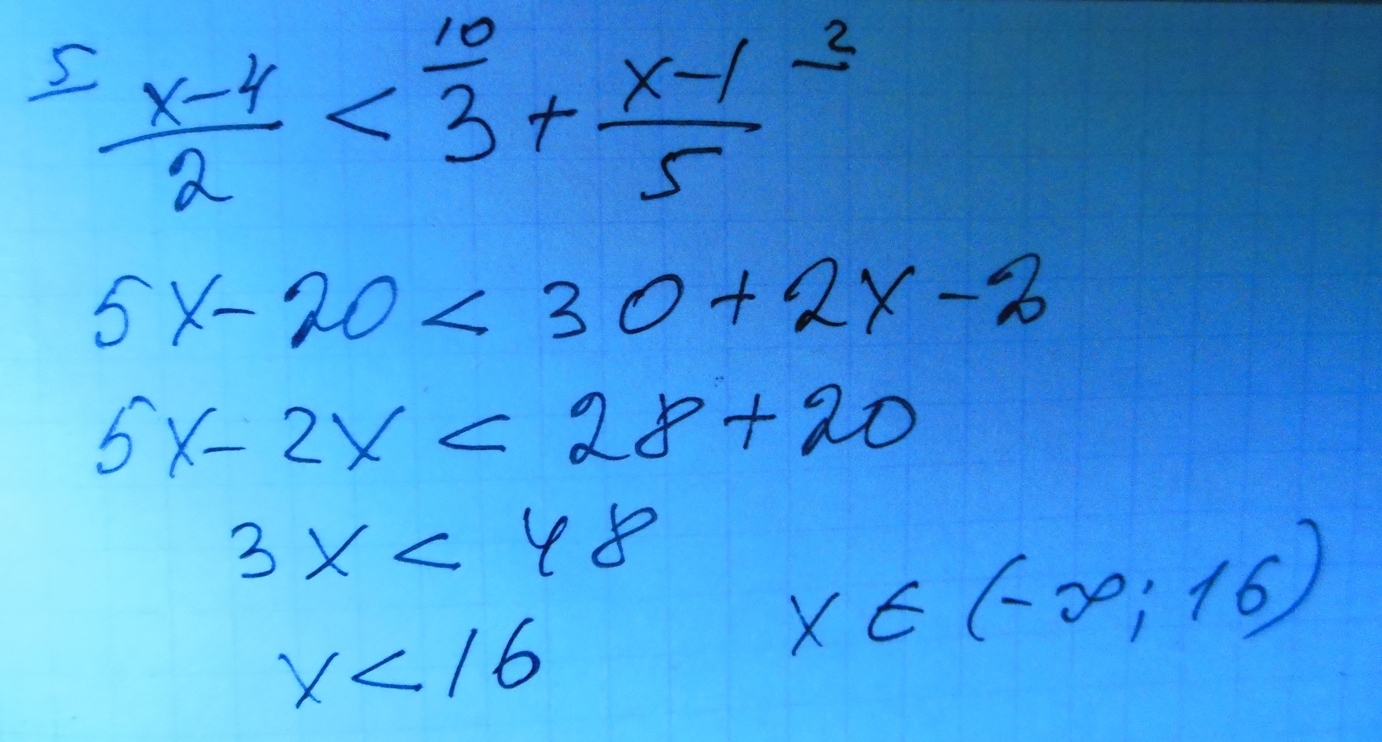 5 (x-4)/2 < 10 3 + (x-1)/5 2
5x - 20 < 30 + 2x - 2
5x - 2x < 28 + 20
3x < 48
x < 16
x ∈ (-∞; 16)